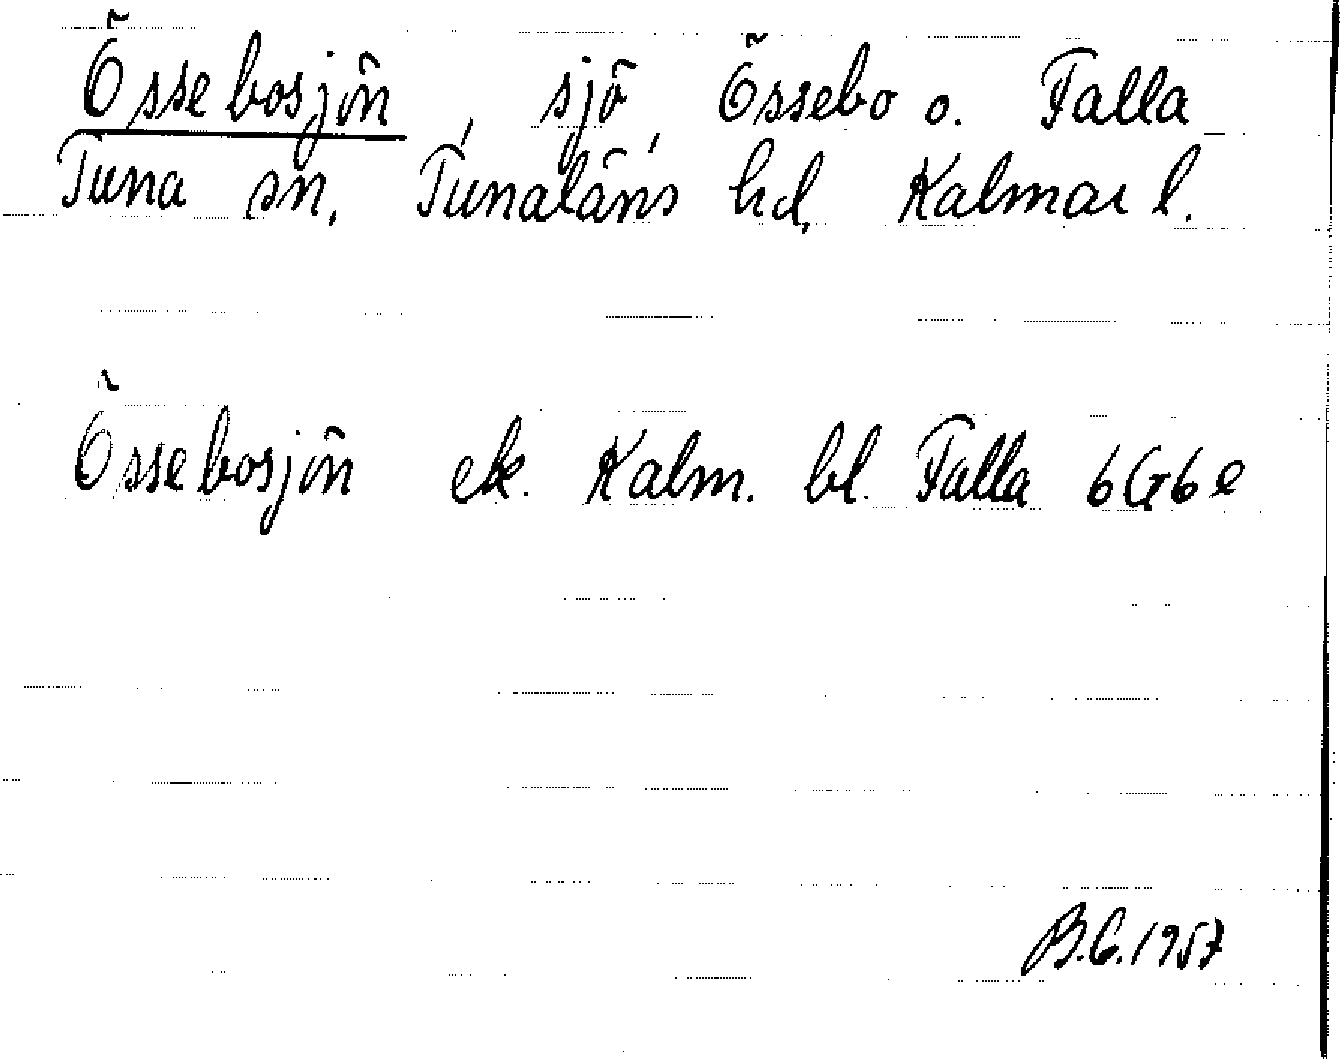 Össebosjön, sjö, Össebo o. Falla
Tuna sn, Tunaläns hd, Kalmar l.
Össebosjön ek. Kalm. bl. Falla 6G6e
B.G.1957